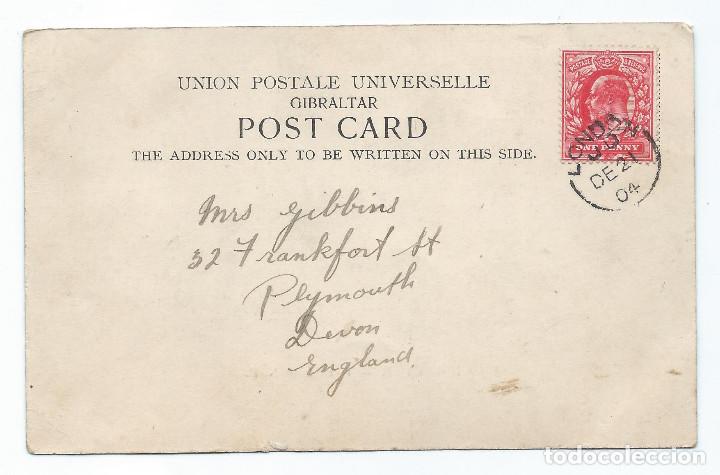 UNION POSTALE UNIVERSELLE
GIBRALTAR
POST CARD
THE ADDRESS ONLY TO BE WRITTEN ON THIS SIDE.
POSTAGE REVENUE
ONE PENNY
LONDON
DE 21
04
Mrs Gibbins
32 Frankfort St
Plymouth
Devon
England.
todocoleccion